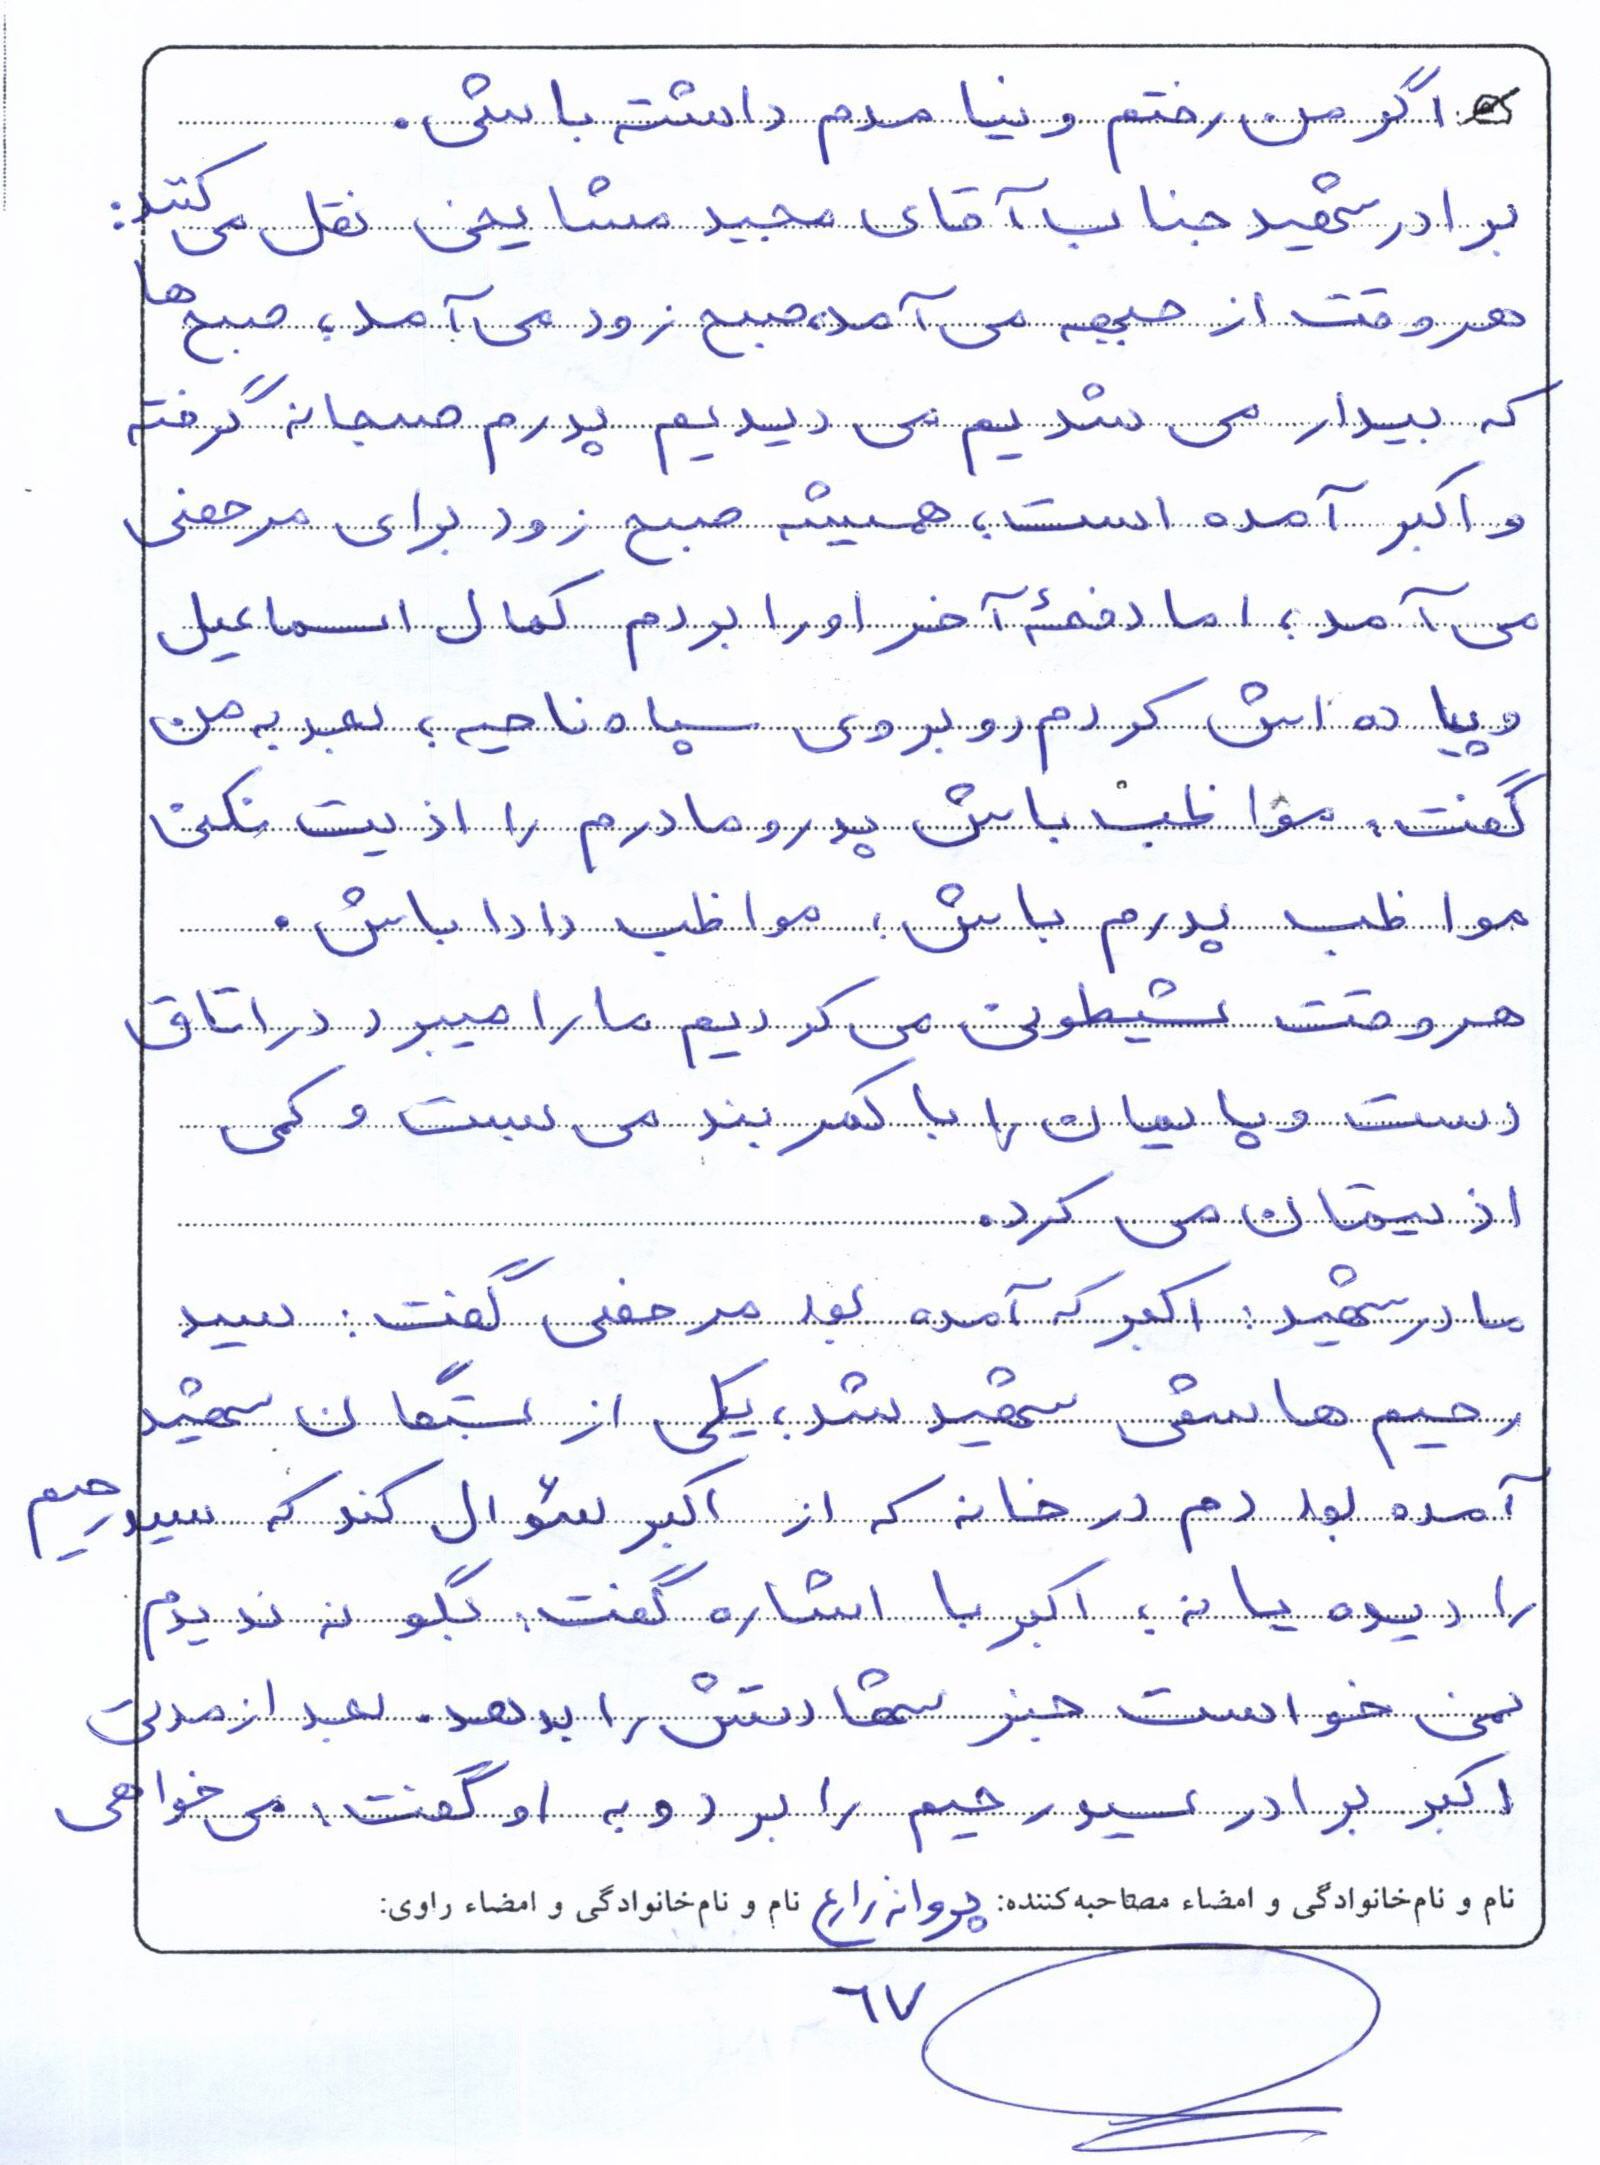 اگر من رفتم و نیا مدم داشته باشی.
برادر شهید جناب آقای مجید مشایخی نقل می کنند:
هر وقت از جبهه می آمد، صبح زود می آمد، صبح ها
که بیدار می شدیم می دیدیم پدرم صبحانه گرفته
و اکبر آمده است، همیشه صبح زود برای مرخصی
می آمد، اما دفعهٔ آخر او را بردم کمال اسماعیل
و پیاده اش کردم روبروی سپاه ناحیه، بعد به من
گفت: مواظب باش پدر و مادرم را اذیت نکنی
مواظب پدرم باش، مواظب دادا باش.
هر وقت شیطونی می کردیم ما را میبرد در اتاق
دست و پایمان را با کمربند می بست و کمی
اذیتمان می کرد.
مادر شهید: اکبر که آمده بود مرخصی گفت: سید
رحیم هاشمی شهید شد، یکی از بستگان شهید
آمده بود دم در خانه که از اکبر سئوال کند که سیدرحیم
را دیده یا نه، اکبر با اشاره گفت: بگو نه ندیدم
نمی خواست خبر شهادتش را بدهد. بعد از مدتی
اکبر برادر سیدرحیم را برد و به او گفت: می خواهی
نام و نام‌خانوادگی و امضاء مصاحبه‌کننده: پروانه زارع نام و نام‌خانوادگی و امضاء راوی:
٦٧